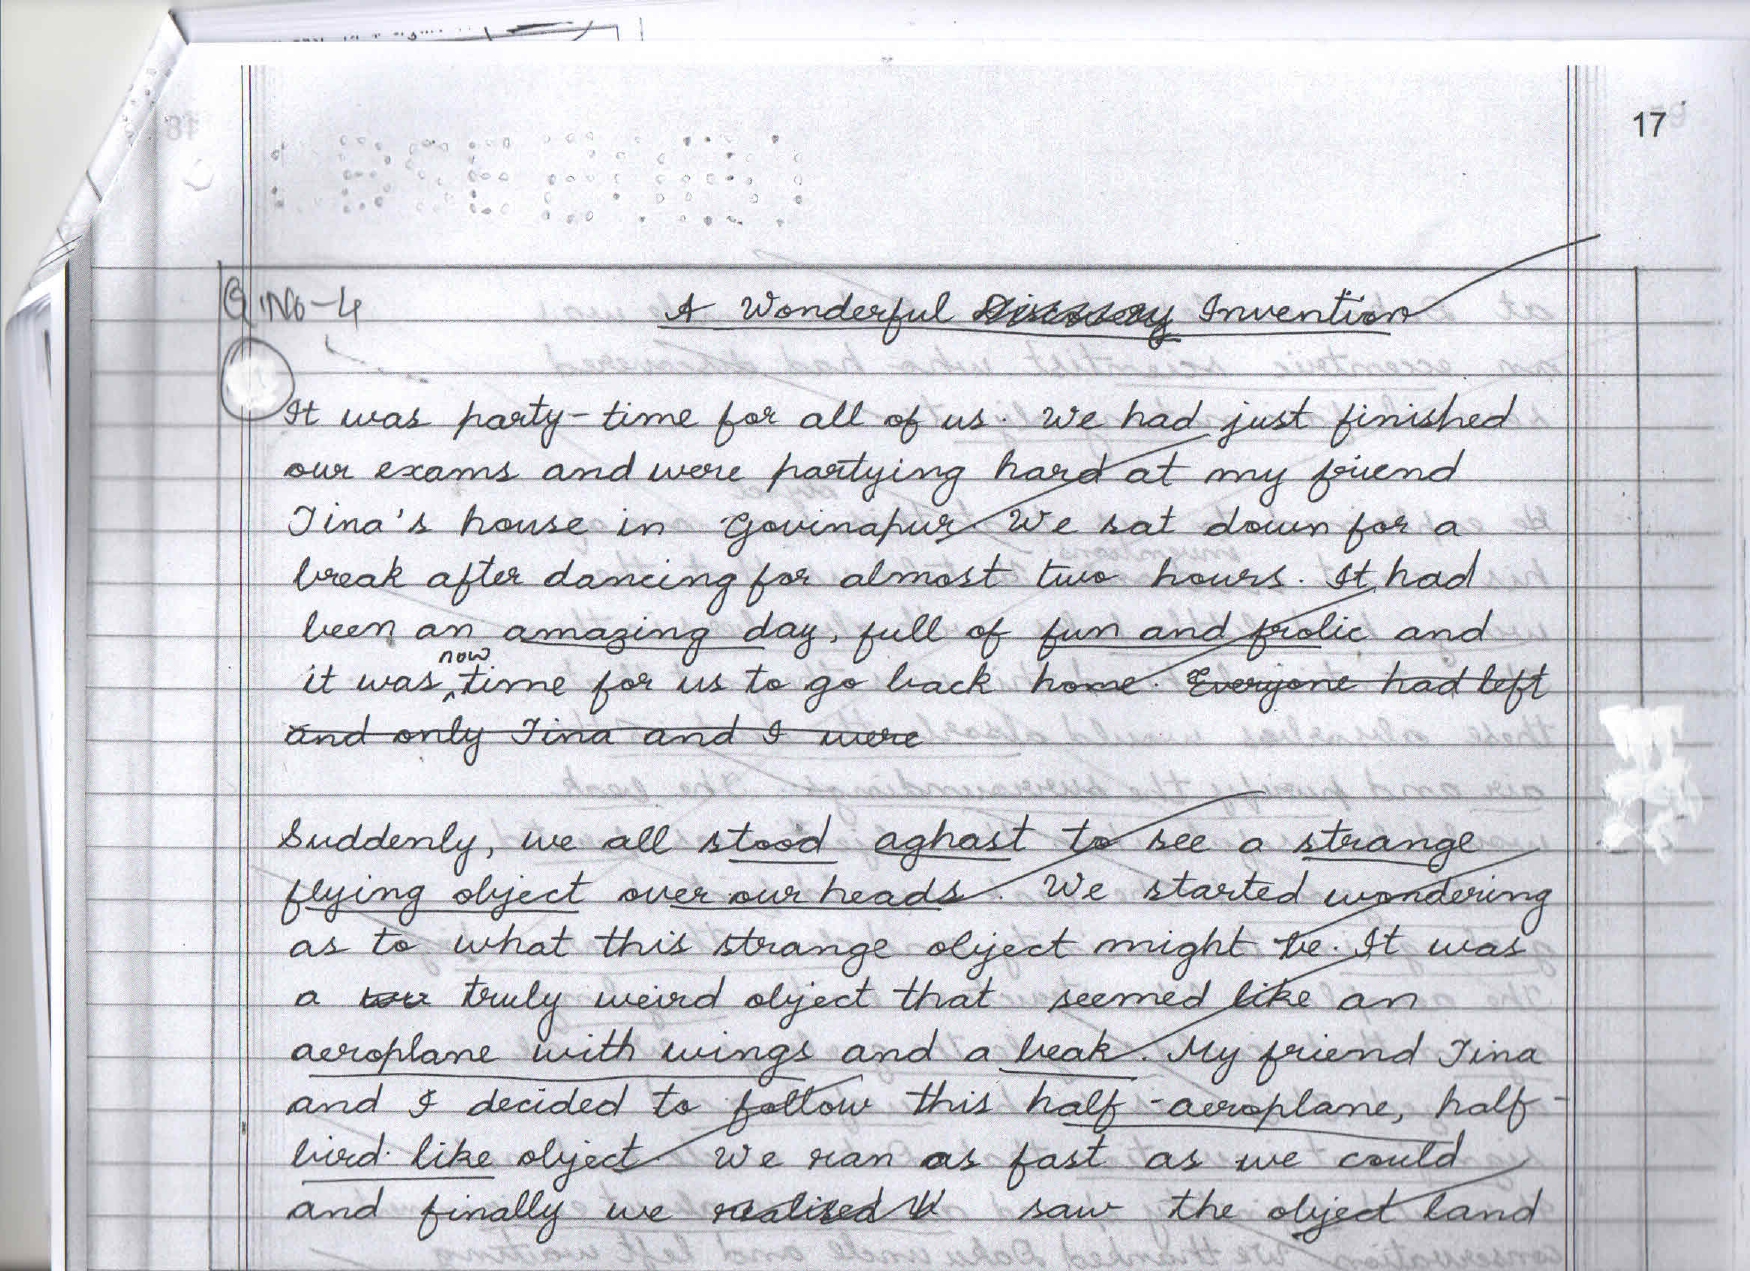 17
Q No-4
A Wonderful Discovery Invention
It was party-time for all of us. We had just finished
our exams and were partying hard at my friend
Tina's house in Govinapur. We sat down for a
break after dancing for almost two hours. It had
been an amazing day, full of fun and frolic and
it was now time for us to go back home. Everyone had left
and only Tina and I were
Suddenly, we all stood aghast to see a strange
flying object over our heads. We started wondering
as to what this strange object might be. It was
a truly weird object that seemed like an
aeroplane with wings and a beak. My friend Tina
and I decided to follow this half-aeroplane, half-
bird like object. We ran as fast as we could
and finally we realised saw the object land